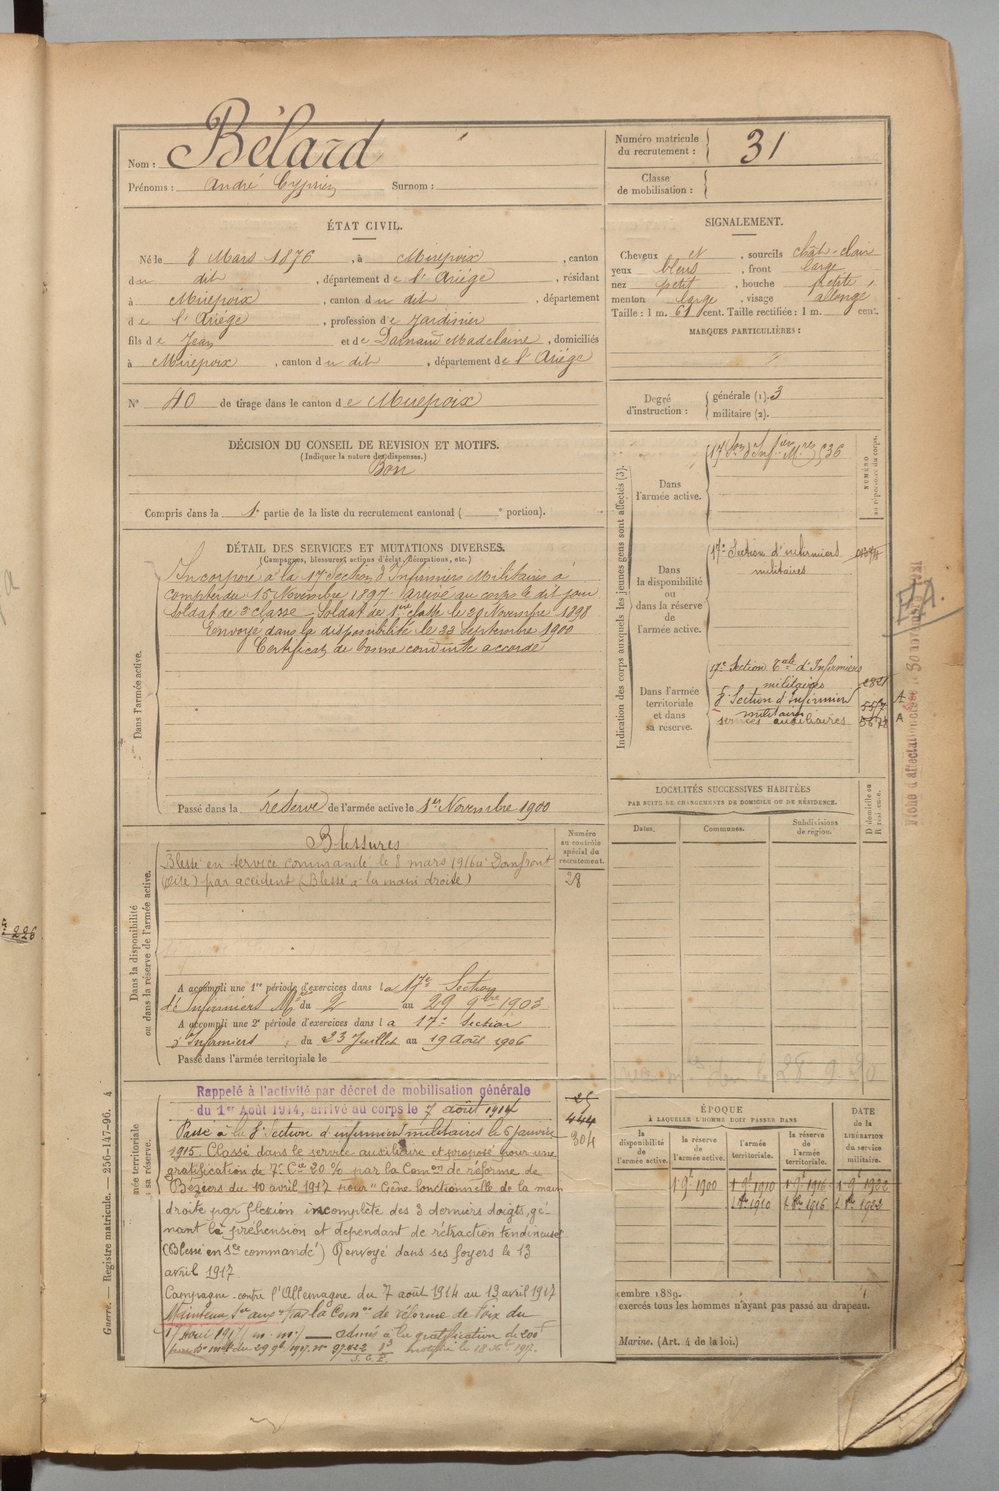 Nom : Bélard
Prénoms : André Cyprien Surnom :
Numéro matricule du recrutement : 31
Classe de mobilisation :
ÉTAT CIVIL.
Né le 8 Mars 1876, à Mirepoix, canton
du dit, département de l'Ariège, résidant
à Mirepoix, canton du dit, département
de l'Ariège, profession de Jardinier
fils de Jean et de Darnaud Madelaine, domiciliés
à Mirepoix, canton du dit, département de l'Ariège
N° 40 de tirage dans le canton de Mirepoix
SIGNALEMENT.
Cheveux et, sourcils chât-clairs
yeux bleus, front large
nez petit, bouche petite,
menton large, visage allongé
Taille : 1 m. 61 cent. Taille rectifiée : 1 m. cent.
MARQUES PARTICULIÈRES :
Degré d'instruction : générale (1). 3
militaire (2).
DÉCISION DU CONSEIL DE REVISION ET MOTIFS.
(Indiquer la nature des dispenses.)
Bon
Compris dans la 1e partie de la liste du recrutement cantonal ( e portion).
DÉTAIL DES SERVICES ET MUTATIONS DIVERSES.
(Campagnes, blessures, actions d'éclat, décorations, etc.)
Dans l'armée active.
Incorporé à la 17e Section d'Infirmiers Militaires à
compter du 15 Novembre 1897 arrivé au corps le dit jour
soldat de 2e classe _ Soldat de 1ère classe le 29 Novembre 1898
Envoyé dans la disponibilité le 23 Septembre 1900
Certificat de bonne conduite accordé
Passé dans la réserve de l'armée active le 1er Novembre 1900
Indication des corps auxquels les jeunes gens sont affectés (3).
NUMÉRO au répertoire du corps.
Dans l'armée active.
Dans la disponibilité ou dans la réserve de l'armée active.
17e Section d'infirmiers
militaires
Dans l'armée territoriale et dans sa réserve.
17e Section Tale d'Infirmiers
militaires
8e Section d'infirmiers
militaires
services auxiliaires
A
A
F.A.
LOCALITÉS SUCCESSIVES HABITÉES
PAR SUITE DE CHANGEMENTS DE DOMICILE OU DE RÉSIDENCE.
Dates. Communes. Subdivisions de région. D domicile ou R résidence.
Dans la disponibilité ou dans la réserve de l'armée active.
Numéro au contrôle spécial du recrutement.
28
Blessures
Blessé en service commandé le 8 mars 1916 à Domfront
(Oise) par accident (Blessé à la main droite)
A accompli une 1re période d'exercices dans la 17e Section
d'Infirmiers Mres du 2 au 29 9bre 1903
A accompli une 2e période d'exercices dans la 17e Section
d'Infirmiers, du 23 Juillet au 19 Août 1906
Passé dans l'armée territoriale le
Rappelé à l'activité par décret de mobilisation générale
du 1er Août 1914, arrivé au corps le 7 août 1914
Passé à la 8e Section d'infirmiers militaires le 6 janvier
1915. Classé dans le service auxiliaire et proposé pour une
gratification de 7e Cie 20 % par la Comon de réforme de
Béziers du 10 avril 1917 pour "Gêne fonctionnelle de la main
droite par flexion incomplète des 3 derniers doigts, gê-
nant la préhension et dépendant de rétraction tendineuse
(Blessé en sce commandé) Renvoyé dans ses foyers le 13
avril 1917.
Campagne contre l'Allemagne du 7 août 1914 au 13 avril 1917
Maintenu Sce aux. par la Comon de réforme de Foix du
admis à la gratification de 200f
28 9 20
ÉPOQUE
À LAQUELLE L'HOMME DOIT PASSER DANS
la disponibilité de l'armée active. la réserve de l'armée active. l'armée territoriale. la réserve de l'armée territoriale.
DATE de la LIBÉRATION du service militaire.
1 9e 1900 1 9e 1910 1 9e 1916 1 9e 1922
cembre 1889.
exercés tous les hommes n'ayant pas passé au drapeau.
Marine. (Art. 4 de la loi.)
Guerre. — Registre matricule. — 256-147-96. 4
226